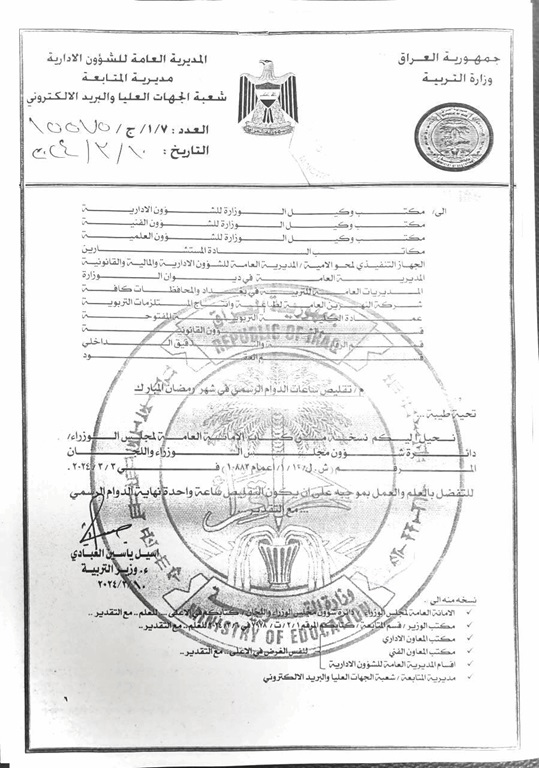 جمهورية العراق
وزارة التربية
المديرية العامة للشؤون الادارية
مديرية المتابعة
شعبة الجهات العليا والبريد الالكتروني
العدد : ٧/١/ج/
التاريخ :
الى/ مكتب وكيل الوزارة للشؤون الادارية
مكتب وكيل الوزارة للشؤون الفنية
مكتب وكيل الوزارة للشؤون العلمية
مكاتب السادة المستشارين
الجهاز التنفيذي لمحو الامية / المديرية العامة للشؤون الادارية والمالية والقانونية
المديرية العامة في ديوان الوزارة
المديريات العامة للتربية في بغداد والمحافظات كافة
شركة النهرين العامة لطباعة وانتاج المستلزمات التربوية
التربوية المفتوحة
القانونية
والتدقيق الداخلي
العقود
م / تقليص ساعات الدوام الرسمي في شهر رمضان المبارك
تحية طيبة ..
نحيل اليكم نسخة من كتاب الامانة العامة لمجلس الوزراء/
دائرة شؤون مجلس الوزراء واللجان
المرقم في ٢٠٢٤/٣/٣
للتفضل بالعلم والعمل بموجبه على ان يكون التقليص ساعة واحدة نهاية الدوام الرسمي
... مع التقدير ...
اسيل ياسين العبادي
ء. وزير التربية
نسخه منه الى -
الامانة العامة لمجلس الوزراء / دائرة شؤون مجلس الوزراء واللجان / كتابكم في الاعلى ... للعلم .. مع التقدير ..
مكتب الوزير / قسم المتابعة / كتابكم المرقم للعلم .. مع التقدير ..
مكتب المعاون الاداري
مكتب المعاون الفني
لنفس الغرض في الاعلى .. مع التقدير ..
اقسام المديرية العامة للشؤون الادارية
مديرية المتابعة / شعبة الجهات العليا والبريد الالكتروني
REPUBLIC OF IRAQ
MINISTRY OF EDUCATION